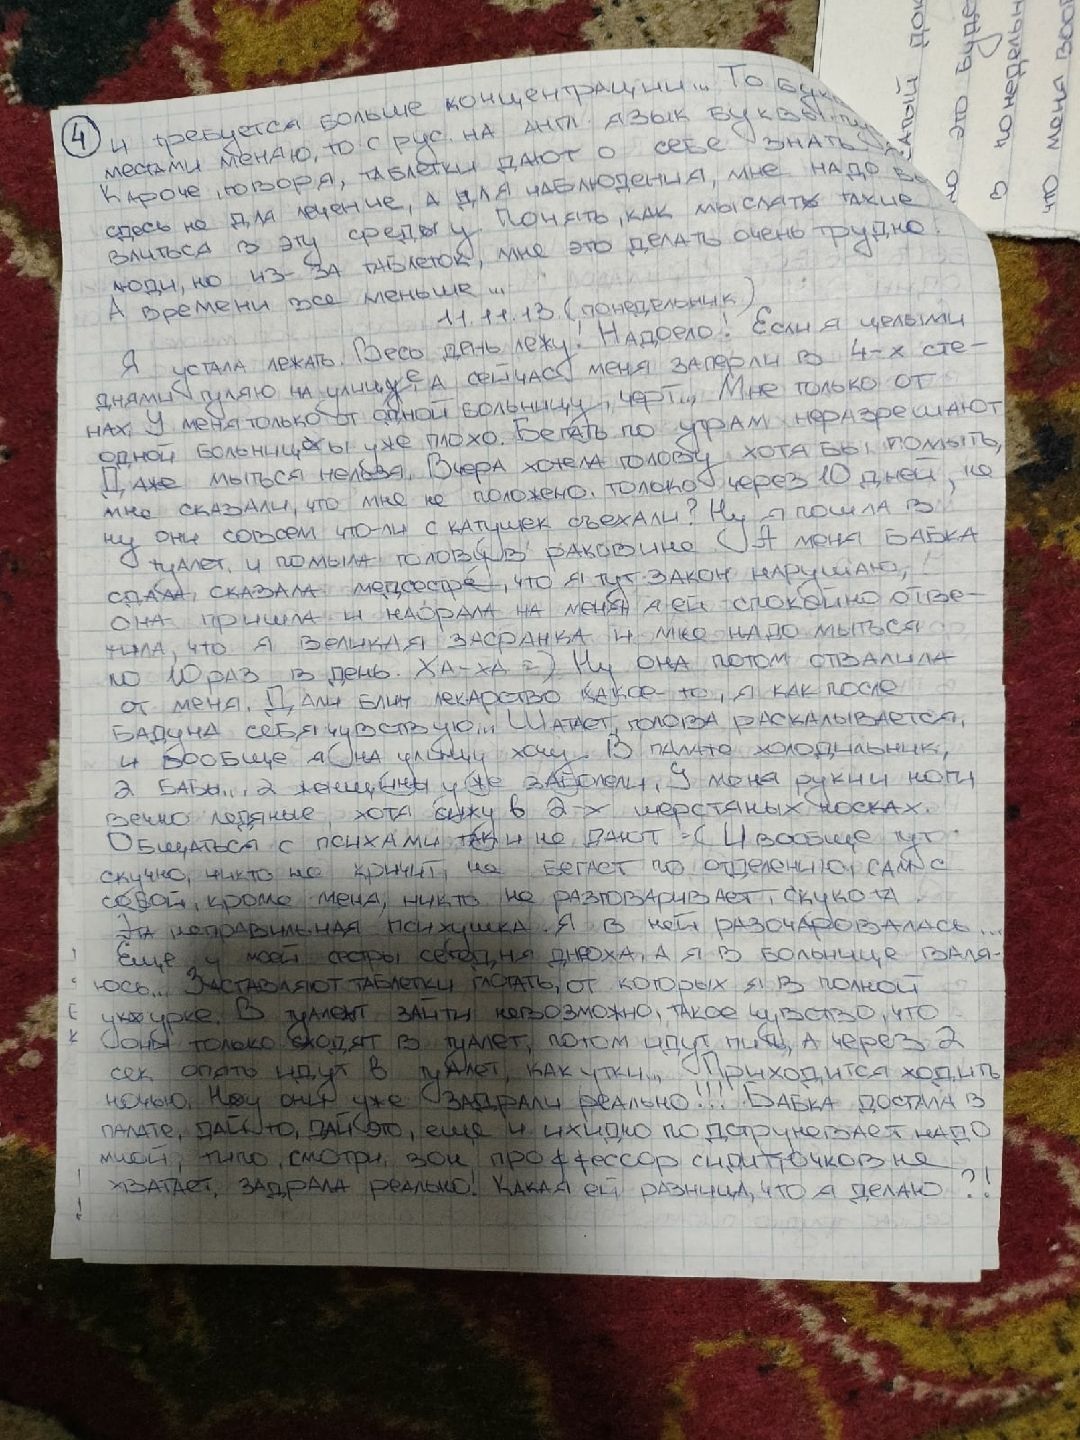 4
и требуется больше концентрации... То букв
местами меняю, то с рус. на англ. язык буквы
Кароче говоря, таблетки дают о себе знать.
здесь не для лечение, а для наблюдения, мне надо
влиться в эту среду. Понять, как мыслят такие
люди, но из-за таблеток, мне это делать очень трудно.
А времени все меньше...
11.11.13 (понедельник)
Я устала лежать. Весь день лежу! Надоело! Если я целыми
днями гуляю на улице, а сейчас меня заперли в 4-х сте-
нах. У меня только от одной больницы, черт... Мне только от
одной больницы уже плохо. Бегать по утрам неразрешают
Даже мыться нельзя. Вчера хотела голову хотябы помыть,
мне сказали, что мне не положено. только через 10 дней,
ну они совсем что-ли с катушек съехали? Ну я пошла в
туалет и помыла голову в раковине. А меня БАБКА
сдала, сказала медсестре, что я тут закон нарушаю,
она пришла и наорала на меня я ей спокойно отве-
тила, что я великая засранка и мне надо мыться
по 10 раз в день. ХА-ХА =) Ну она потом отвалила
от меня. Дали блин лекарство какое-то, я как после
бадуна себя чувствую... Шатает, голова раскалывается,
и вообще я на улицу хочу. В палате холодильник,
2 бабы... 2 женщины уже заболели. У меня руки и ноги
вечно ледяные, хотя сижу в 2-х шерстяных носках.
Общаться с психами так и не дают =( И вообще тут
скучно, никто не кричит, не бегает по отделению, сам с
собой, кроме меня, никто не разговаривает, скукота.
Эта неправильная психушка. Я в ней разочаровалась...
Еще у моей сестры сегодня днюха, а я в больнице валя-
юсь... Заставляют таблетки глотать, от которых я в полной
укурке. В туалет зайти невозможно, такое чувство, что
они только ходят в туалет, потом идут пить, а через 2
сек опять идут в туалет, как утки... Приходится ходить
ночью. Ну они уже задрали реально!!! Бабка достала в
палате, дай то, дай это, еще и ихидно подструневает надо
мной, типо, смотри, вон, проффессор сидит, очков не
хватает, задрала реально. Какая ей разница, что я делаю?!
но это буде
в понедельн
что меня